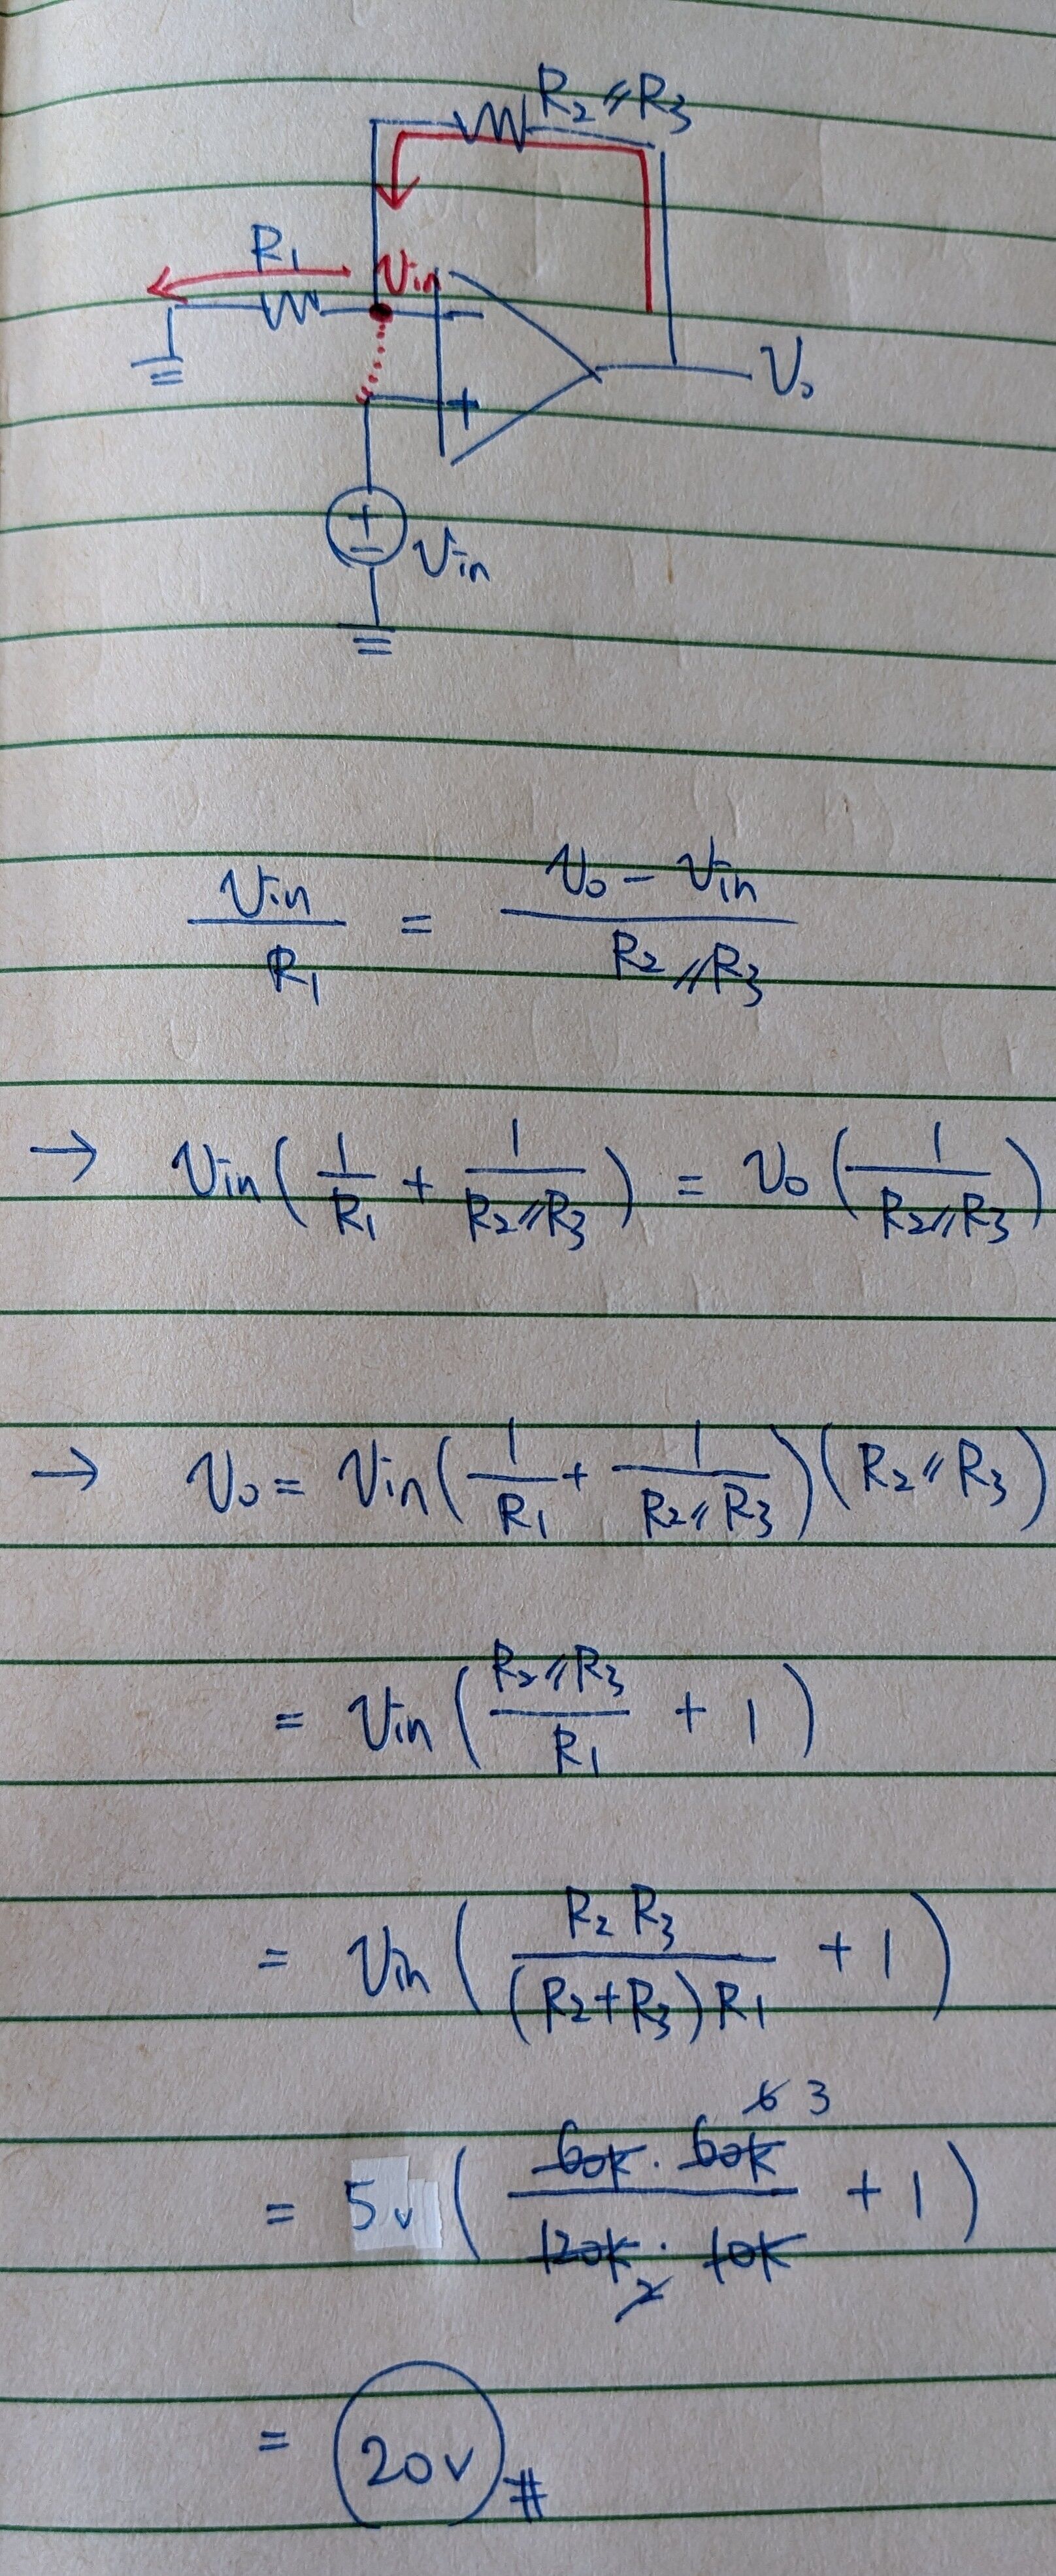 R₂ // R₃
R₁
Vin
+
V₀
+
−
Vin
Vin / R₁ = (V₀ − Vin) / (R₂ // R₃)
→ Vin ( 1/R₁ + 1/(R₂ // R₃) ) = V₀ ( 1/(R₂ // R₃) )
→ V₀ = Vin ( 1/R₁ + 1/(R₂ // R₃) ) ( R₂ // R₃ )
= Vin ( (R₂ // R₃)/R₁ + 1 )
= Vin ( R₂ R₃ / ((R₂ + R₃) R₁) + 1 )
6 3
= 5v ( 60k · 60k / (120k · 10k) + 1 )
2
= 20v #